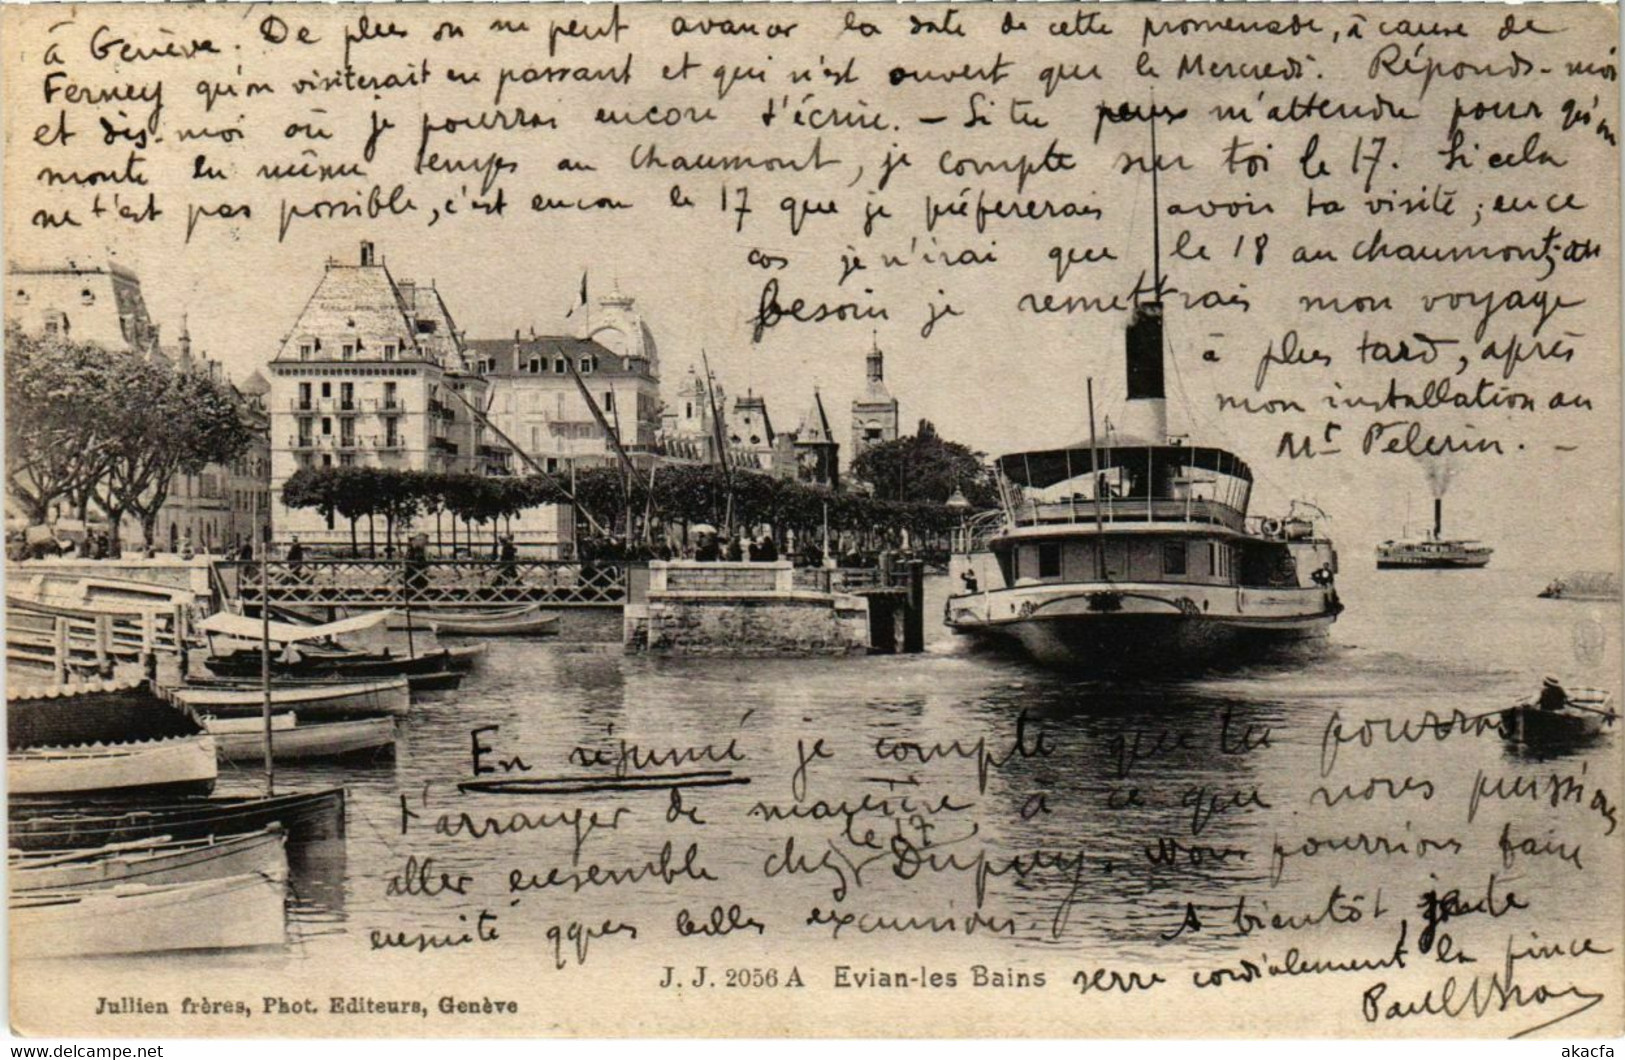 à Genève. De plus on ne peut avancer la date de cette promenade, à cause de
Ferney qu'on visiterait en passant et qui n'est ouvert que le Mercredi. Réponds-moi
et dis-moi où je pourrai encore t'écrire. – Si tu peux m'attendre pour qu'on
monte en même temps au Chaumont, je compte sur toi le 17. Si cela
ne t'est pas possible, c'est encore le 17 que je préfererais avoir ta visite; en ce
cas je n'irai que le 18 au Chaumont; au
besoin je remettrais mon voyage
à plus tard, après
mon installation au
Mt Pélerin. –
En résumé je compte que tu pourras
t'arranger de manière, à ce que nous puissions
aller ensemble chez Dupuy. Nous pourrions faire
le 17
ensuite qques belles excursions. A bientôt, je te
serre cordialement la pince
Paul
J. J. 2056 A Evian-les Bains
Jullien frères, Phot. Editeurs, Genève
akacfa